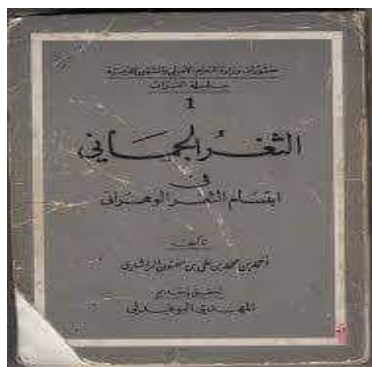 منشورات وزارة التعليم الأصلي والشؤون الدينية
سلسلة التراث
1
الثغر الجماني
في
ابتسام الثغر الوهراني
تأليف
أحمد بن محمد بن علي بن سحنون الراشدي
تحقيق وتقديم
المهدي البوعبدلي